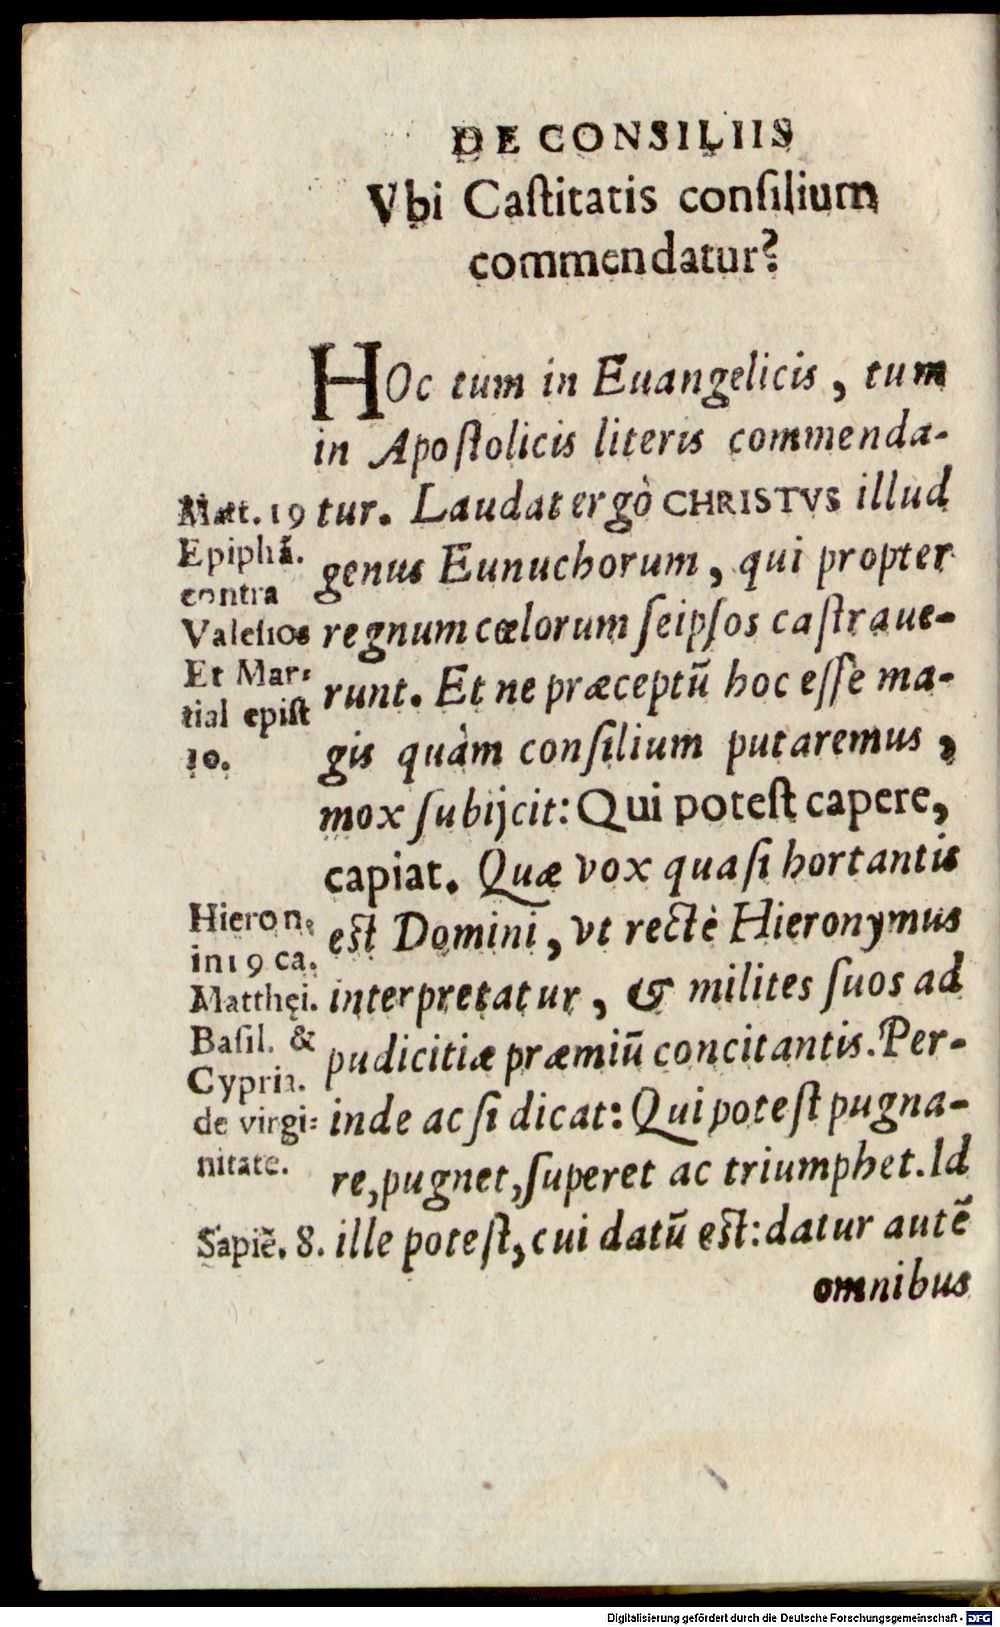 DE CONSILIIS
Vbi Caſtitatis conſilium
commendatur?
HOc tum in Euangelicis, tum
in Apoſtolicis literis commenda-
Matt. 19
tur. Laudat ergò CHRISTVS illud
Epiphā.
genus Eunuchorum, qui propter
contra
Valeſios
regnum cœlorum ſeipſos caſtraue-
Et Mar-
runt. Et ne præceptū hoc eſſe ma-
tial epiſt
10.
gis quàm conſilium putaremus,
mox ſubijcit: Qui poteſt capere,
capiat. Quæ vox quaſi hortantis
Hieron.
eſt Domini, vt rectè Hieronymus
in 19 ca.
Matthęi.
interpretatur, & milites ſuos ad
Baſil. &
pudicitiæ præmiū concitantis. Per-
Cypria.
de virgi-
inde ac ſi dicat: Qui poteſt pugna-
nitate.
re, pugnet, ſuperet ac triumphet. Id
Sapiē. 8.
ille poteſt, cui datū eſt: datur autē
omnibus
Digitalisierung gefördert durch die Deutsche Forschungsgemeinschaft - DFG